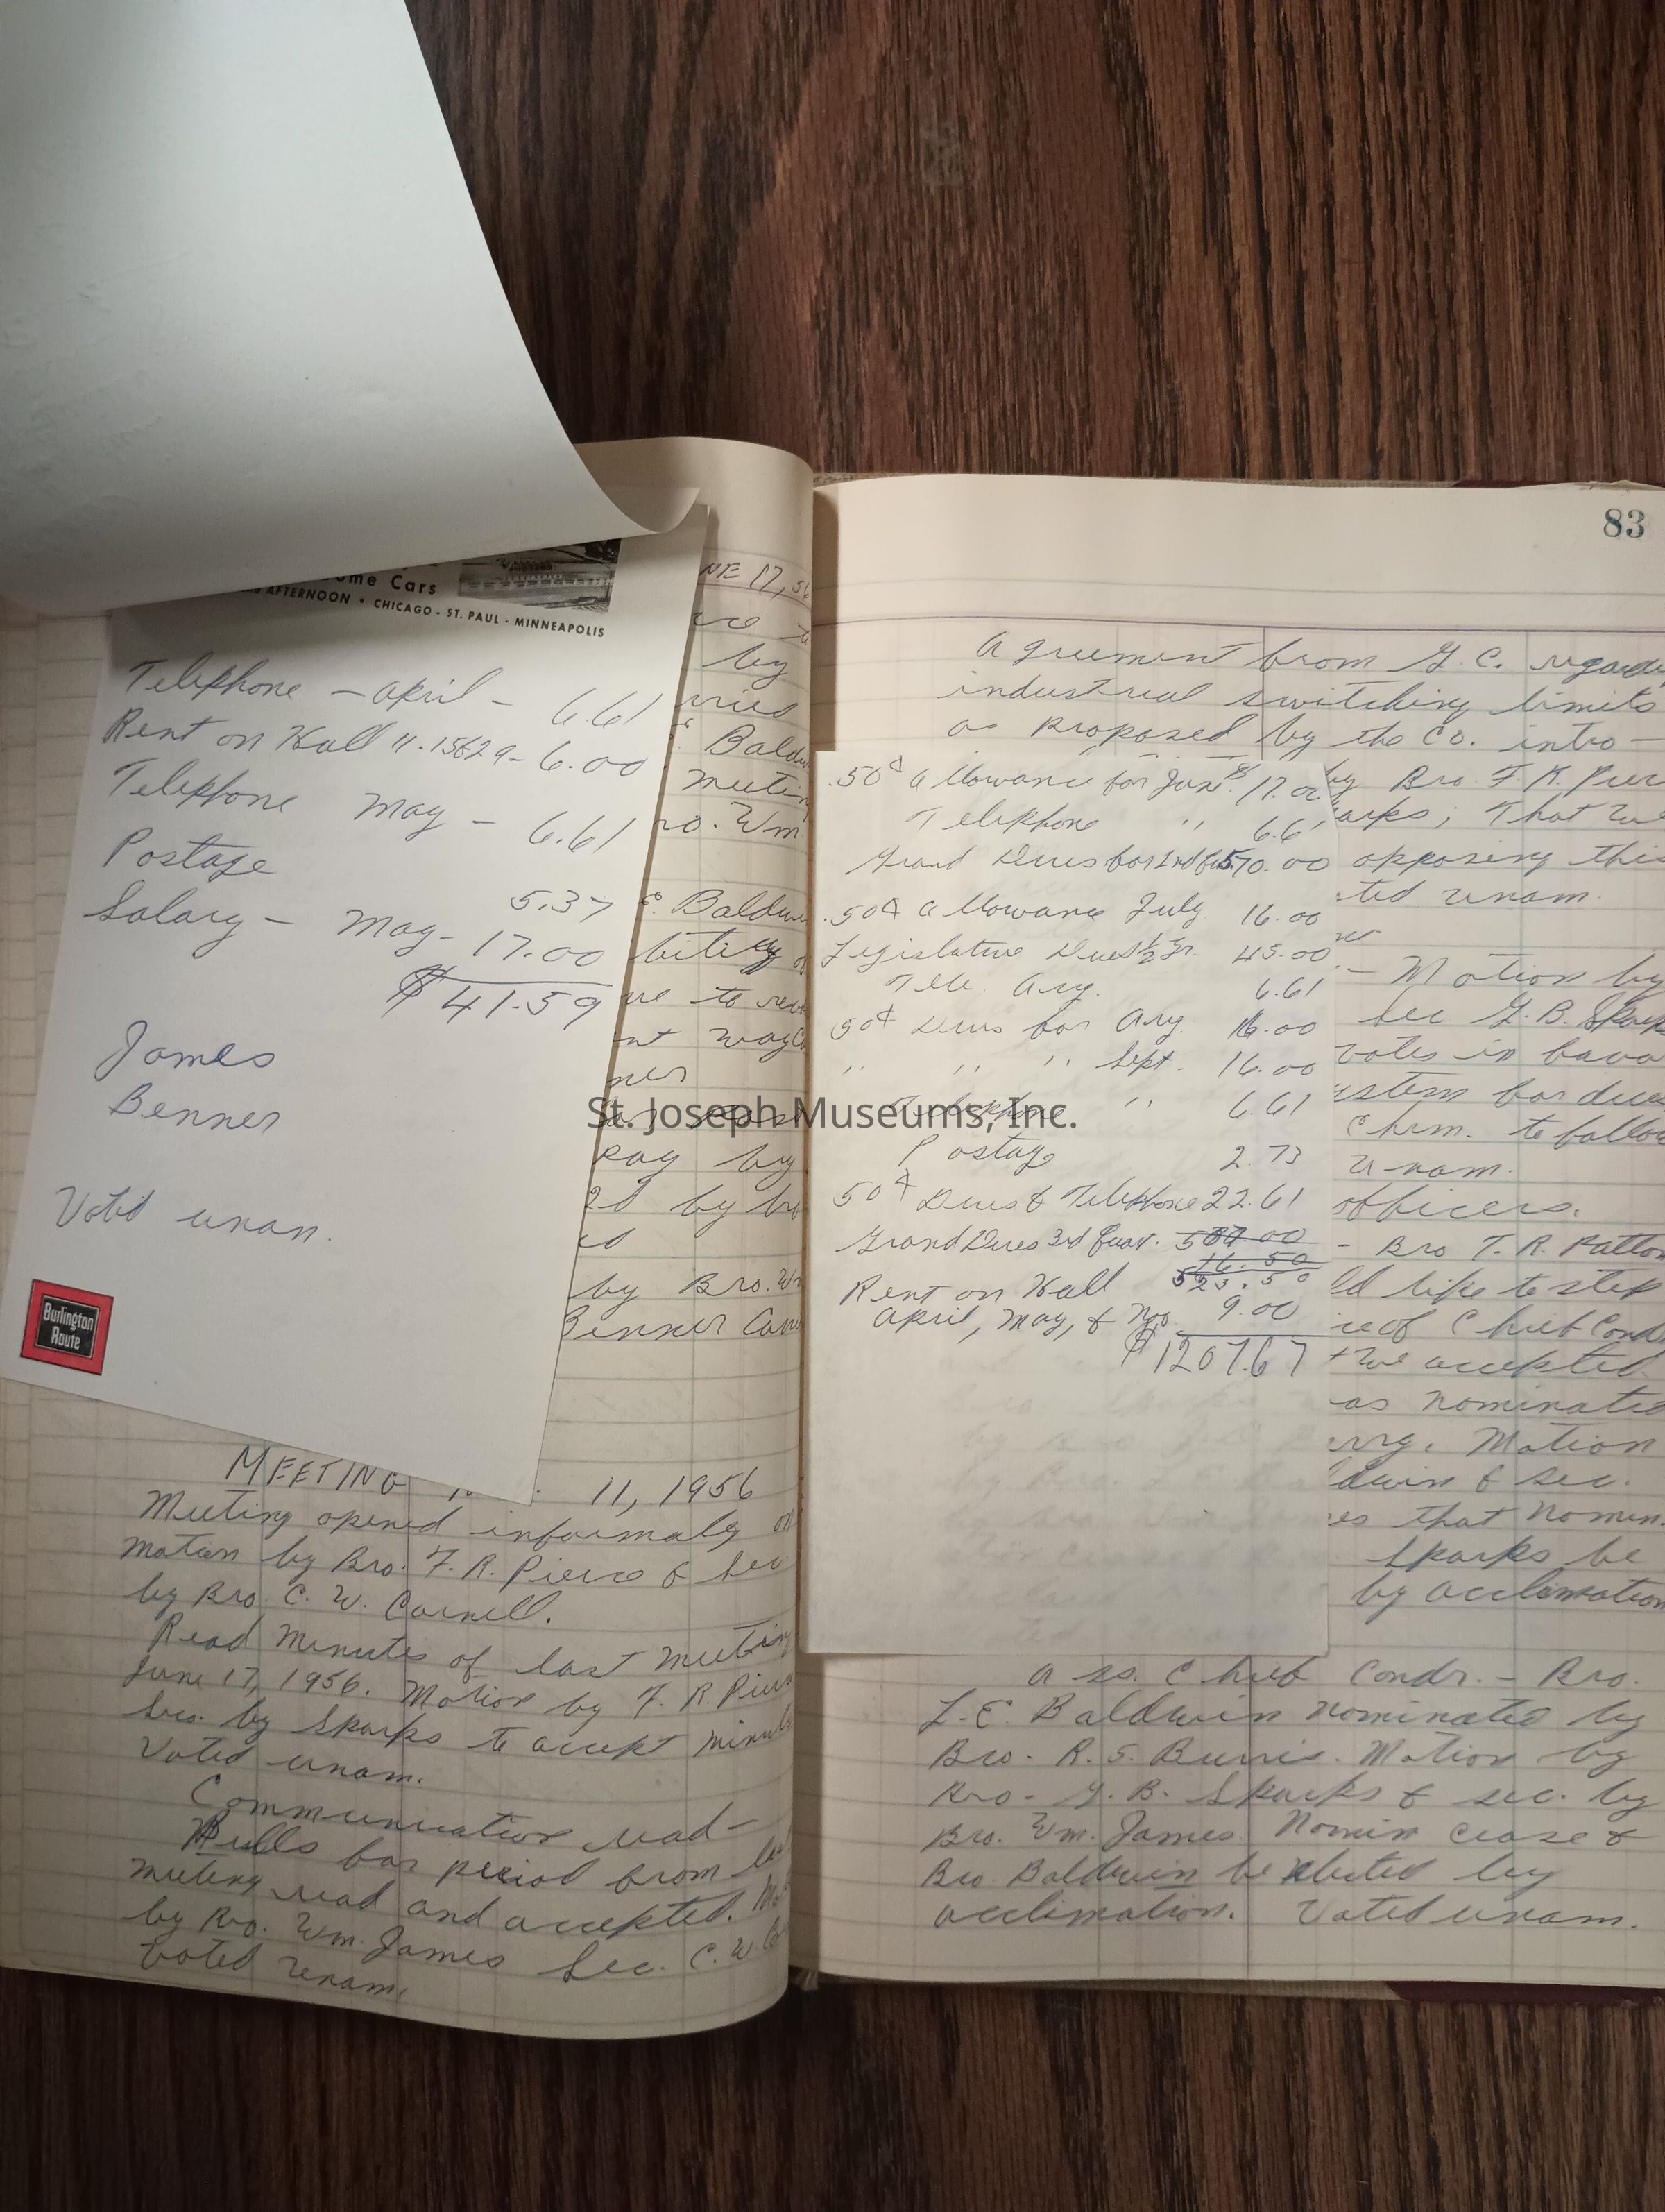 ome Cars
AFTERNOON • CHICAGO - ST. PAUL - MINNEAPOLIS
Telephone – April – 6.61
Rent on Hall 11.15629– 6.00
Telephone May – 6.61
Postage 5.37
Salary – May – 17.00
$41.59
James
Benner
Voted unan.
Burlington
Route
NE 17, 56
by
Bald
meetin
ro. Wm
E. Baldw
to rev
pay by
by Bro. W
Benner
MEETING 11, 1956
Meeting opened informaly on
motion by Bro. F. R. Pierce & Sec
by Bro. C. W. Carnell.
Read Minutes of last meeting
June 17, 1956. Motion by F. R. Pierc
Sec. by Sparks to accept minut
Voted unam.
Communication read –
Bills for period from la
meeting read and accepted. Mo
by Bro. Wm. James Sec. C. W. Ca
Voted unam.
83
Agreement from G. C. regardi
industrial switching limits
as proposed by the Co. intro –
by Bro. F. R. Pier
arks; That we
opposing this
ted unam.
– Motion by
Sec G. B. Spark
votes in favo
ystem for dues
Chrm. to follow
unam.
officers.
– Bro T. R. Patton
ld like to step
ice of Chief Cond
accepted
as nominated
erry. Motion
ldwin & sec.
es that Nomin.
Sparks be
by acclamation
.50¢ Allowance for June 17.00
Telephone " 6.6
Grand Dues for 2nd Qu. 570.00
.50¢ Allowance July 16.00
Legislative Dues ½ Yr. 45.00
Tele. Aug. 6.61
50¢ Dues for Aug. 16.00
" " " Sept. 16.00
Telephone " 6.61
Postage 2.73
50¢ Dues & Telephone 22.61
Grand Dues 3rd Quar. 507.00
16.50
523.50
Rent on Hall
April, May, & No. 9.00
$1207.67
Ass. Chief Condr. – Bro.
L. E. Baldwin nominated by
Bro. R. S. Burris. Motion by
Bro. G. B. Sparks & sec. by
Bro. Wm. James Nomin cease &
Bro. Baldwin be elected by
acclimation. Voted unam.
St. Joseph Museums, Inc.